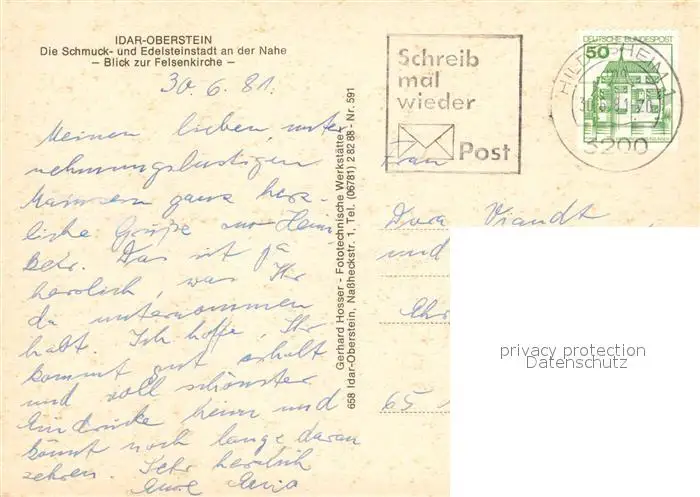 IDAR-OBERSTEIN
Die Schmuck- und Edelsteinstadt an der Nahe
– Blick zur Felsenkirche –
30.6.81.
Meinen lieben, unter
nehmungslustigen
Mainzern ganz herz-
liche Grüße zur Heim
kehr. Das ist ja
herrlich, was Ihr
da unternommen
habt. Ich hoffe, Ihr
kommt gut erholt
und voll schönster
Eindrücke heim und
könnt noch lange daran
zehren. Sehr herzlich
Eure
Gerhard Hosser - Fototechnische Werkstätte
658 Idar-Oberstein, Naßheckstr. 1, Tel. (06781) 2 82 88 - Nr. 591
Schreib
mal
wieder
Post
DEUTSCHE BUNDESPOST
50
HILDESHEIM 1
3200
Frau
Dora Viandt
und
65
privacy protection
Datenschutz